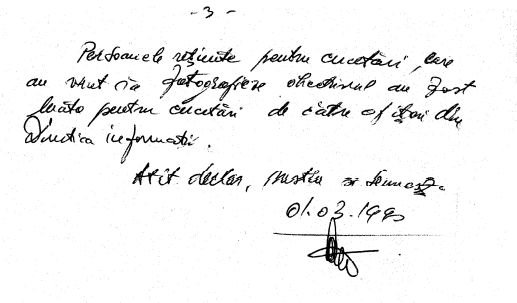 - 3 -
Persoanele reținute pentru cercetări, care
au vrut să fotografieze obiectivul au fost
luate pentru cercetări de către ofițeri din
Direcția informații.
Atît declar, susțin și semnez.
01.03.1990